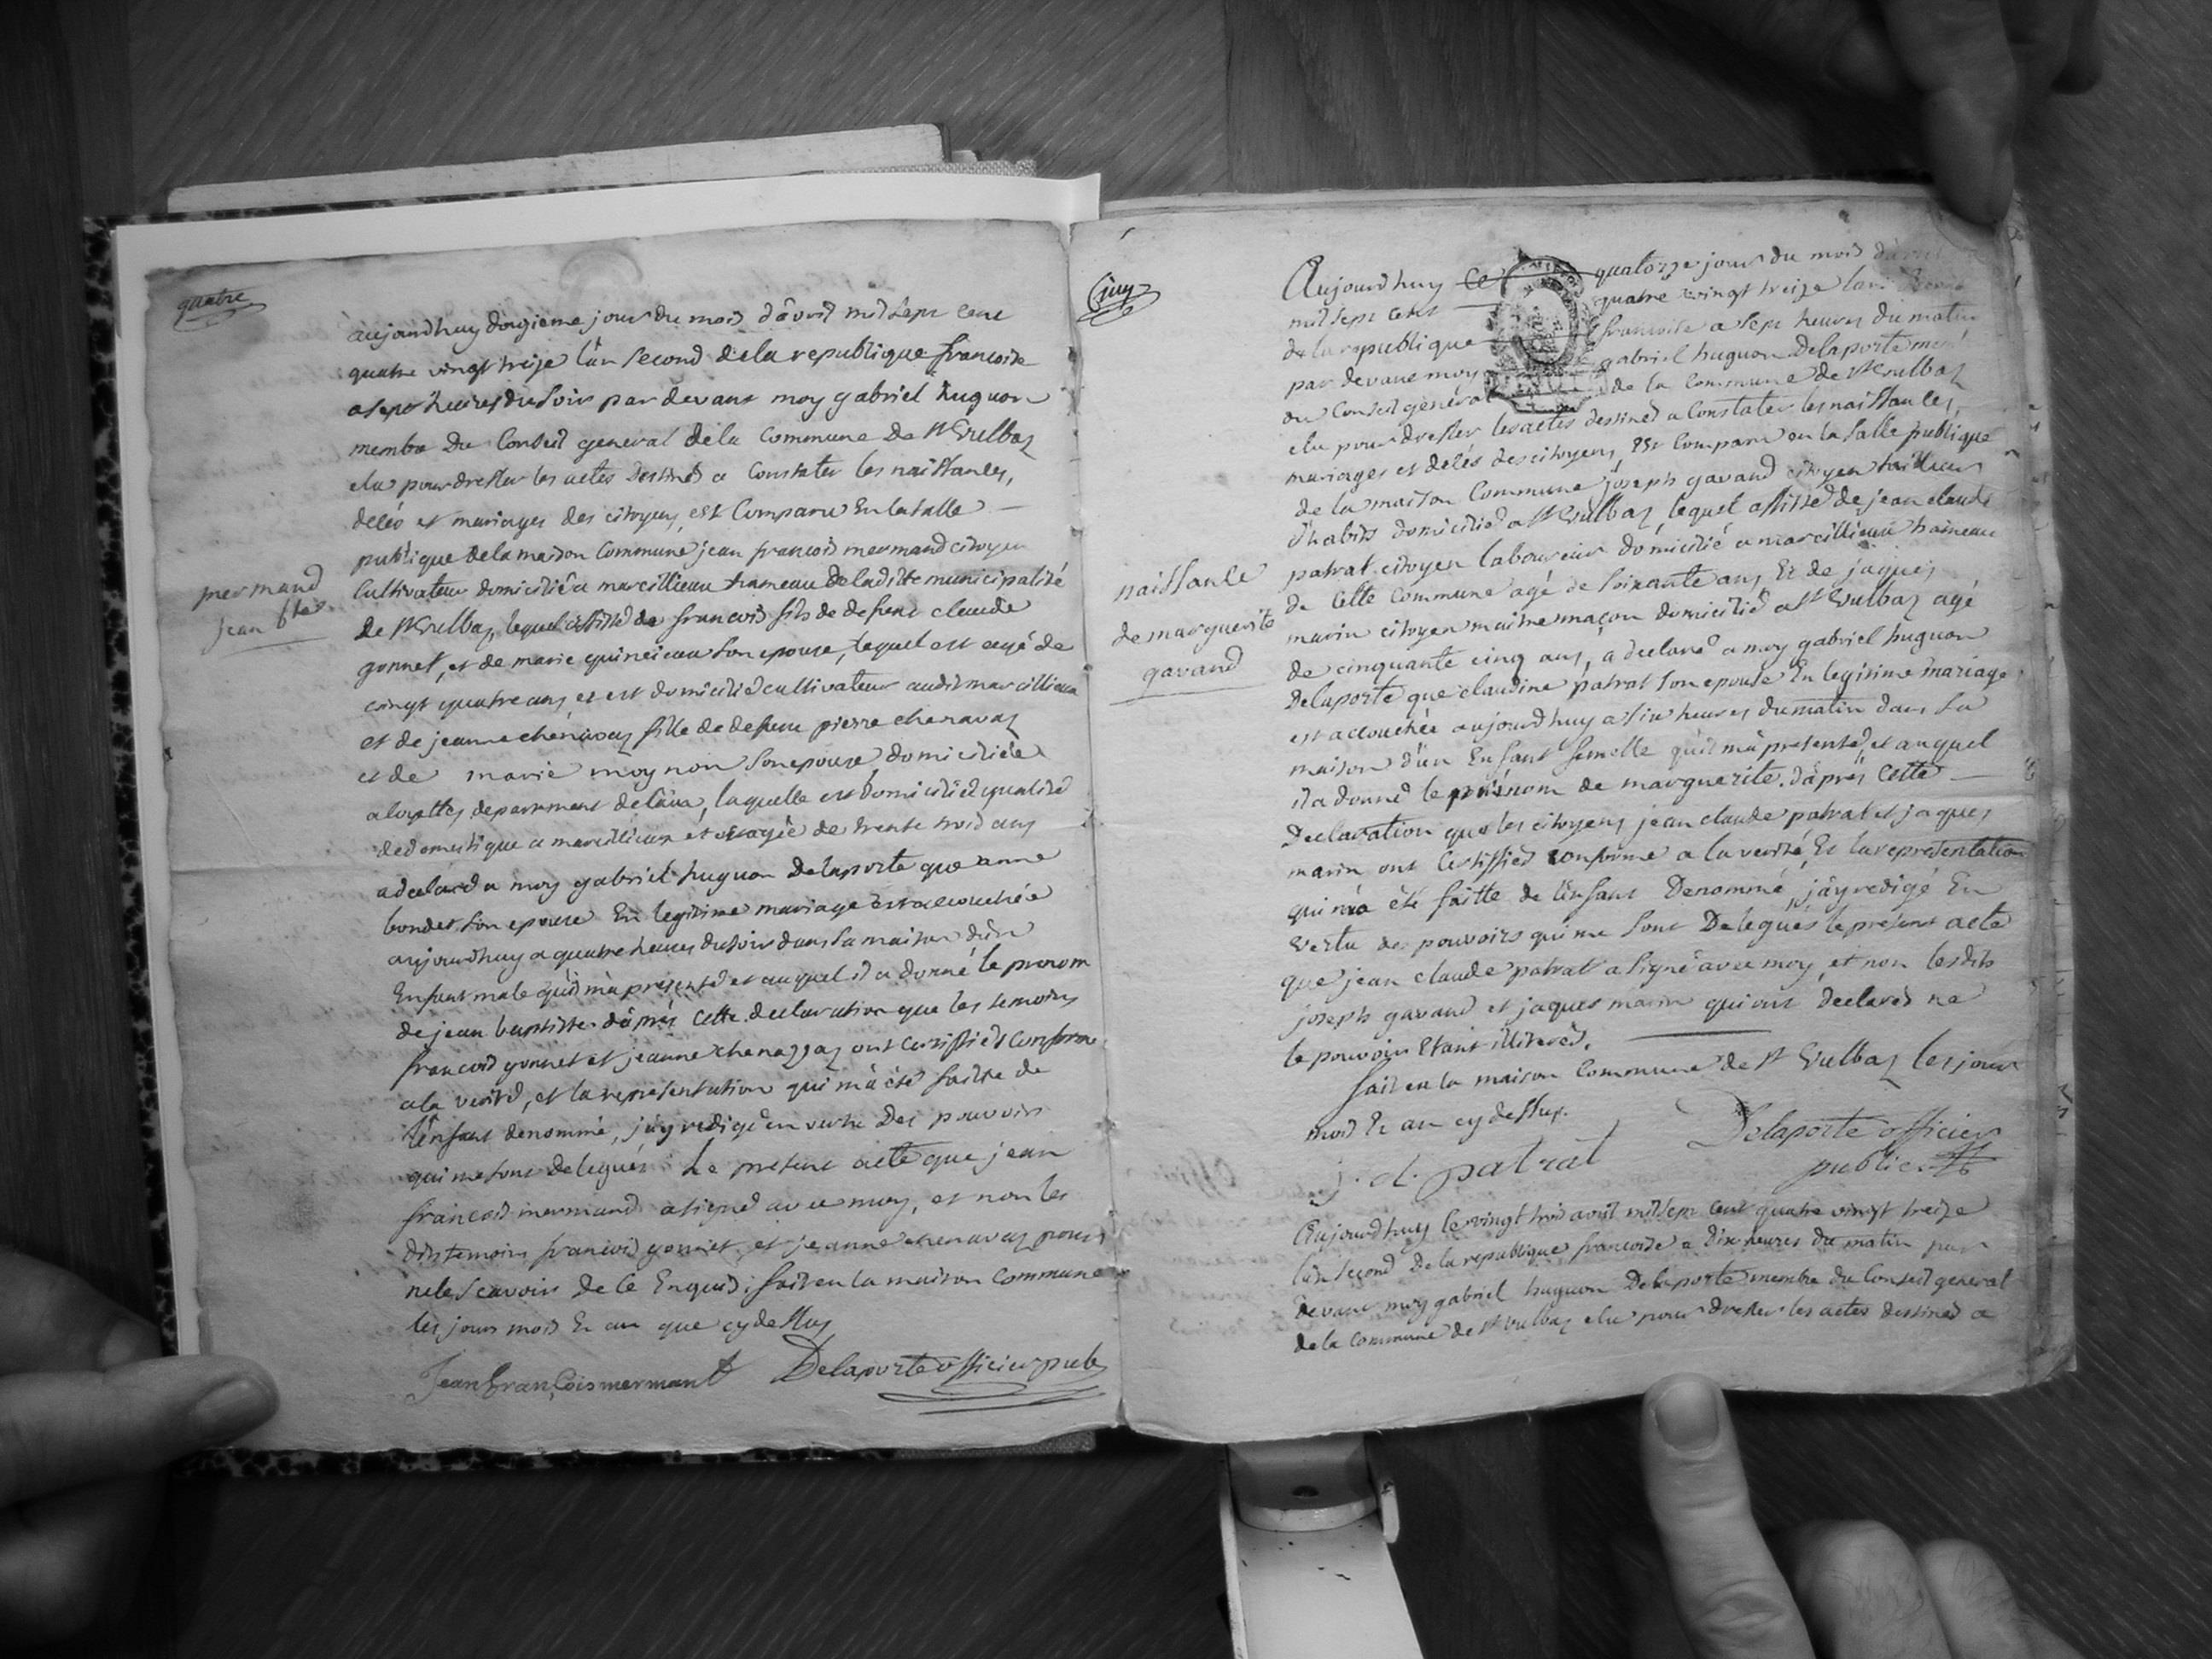 quatre
aujourdhuy douzieme jour du mois d'avril mil sept cent
quatre vingt treize l'an second de la republique francoise
a sept heures du soir par devant moy gabriel huguon
membre du Conseil general de la Commune de St Vulbaz
elu pour dresser les actes destinés a Constater les naissances,
décés et mariages des citoyens, est Comparu En la salle
publique de la maison Commune jean francois mermand citoyen
Cultivateur domicilié a marcillieux hameau de la ditte municipalité
mermand
jean btes
de St Vulbaz lequel assisté de francois fils de defunt claude
gonnet, et de marie quineieux son epouse, lequel est agé de
vingt quatre ans et est domicilié cultivateur audit marcillieux
et de jeanne chenavaz fille de defunt pierre chenavaz
et de marie moynon son epouse domiciliée
a loyettes departement de l'ain, laquelle est domicilié qualité
de domestique a marcillieux et est agée de trente trois ans
a declaré a moy gabriel huguon Delaporte que anne
bondet son epouse En legitime mariage est accouchée
aujourdhuy a quatre heures du soir dans sa maison d'un
Enfant male qu'il m'a presenté et auquel il a donné le prenom
de jean baptiste. d'apres Cette declaration que les temoins
francois gonnet et jeanne chenavaz ont certifiés Conforme
a la verité, et la representation qui m'a été faitte de
l'enfant denommé, j'ay redigé en vertu Des pouvoirs
qui me sont delegués Le present acte que jean
francois mermand a signé avec moy, et non les
dits temoins francois gonnet et jeanne chenavaz pour
ne le scavoir de Ce Enquis; fait en la maison Commune
les jour mois Et an que cy dessus
Jean François mermant Delaporte officier pub
Cinq
Aujourdhuy Ce quatorze jour du mois d'avril
mil sept cent quatre vingt treize l'an
de la republique francoise a sept heures du matin
par devant moy gabriel huguon Delaporte
du Conseil general de la Commune de St Vulbaz
elu pour dresser les actes destinés a Constater les naissances,
mariages et décés des citoyens, Est Comparu en la salle publique
de la maison Commune joseph gavand citoyen tailleur
d'habits domicilié a St Vulbaz, lequel assisté de jean claude
patrat citoyen laboureur domicilié a marcillieux hameau
naissance
de marguerite
gavand
de Cette Commune agé de soixante ans Et de jaques
marin citoyen maitre maçon domicilié a St Vulbaz agé
de cinquante cinq ans, a declaré a moy gabriel huguon
Delaporte que claudine patrat son epouse En legitime mariage
est accouchée aujourdhuy a six heures du matin dans sa
maison d'un Enfant femelle qu'il m'a presenté, et auquel
il a donné le prénom de marguerite. d'aprés Cette
Declaration que les citoyens jean claude patrat et jaques
marin ont Certiffiés conforme a la verité, Et la representation
qui m'a été faitte de l'enfant Denommé, j'ay redigé En
vertu des pouvoirs qui me sont Delegués le present acte
que jean claude patrat a signé avec moy, et non les dits
joseph gavand et jaques marin qui ont declarés ne
le pouvoir Etant illiterés.
fait en la maison Commune de St Vulbaz les jour
mois Et an cy dessus.
j. cl. patrat Delaporte officier
public
Aujourdhuy le vingt trois avril mil sept cent quatre vingt treize
l'an second De la republique francoise a dix heures du matin par
devant moy gabriel huguon Delaporte membre du Conseil general
de la Commune de St Vulbaz elu pour dresser les actes destinés a